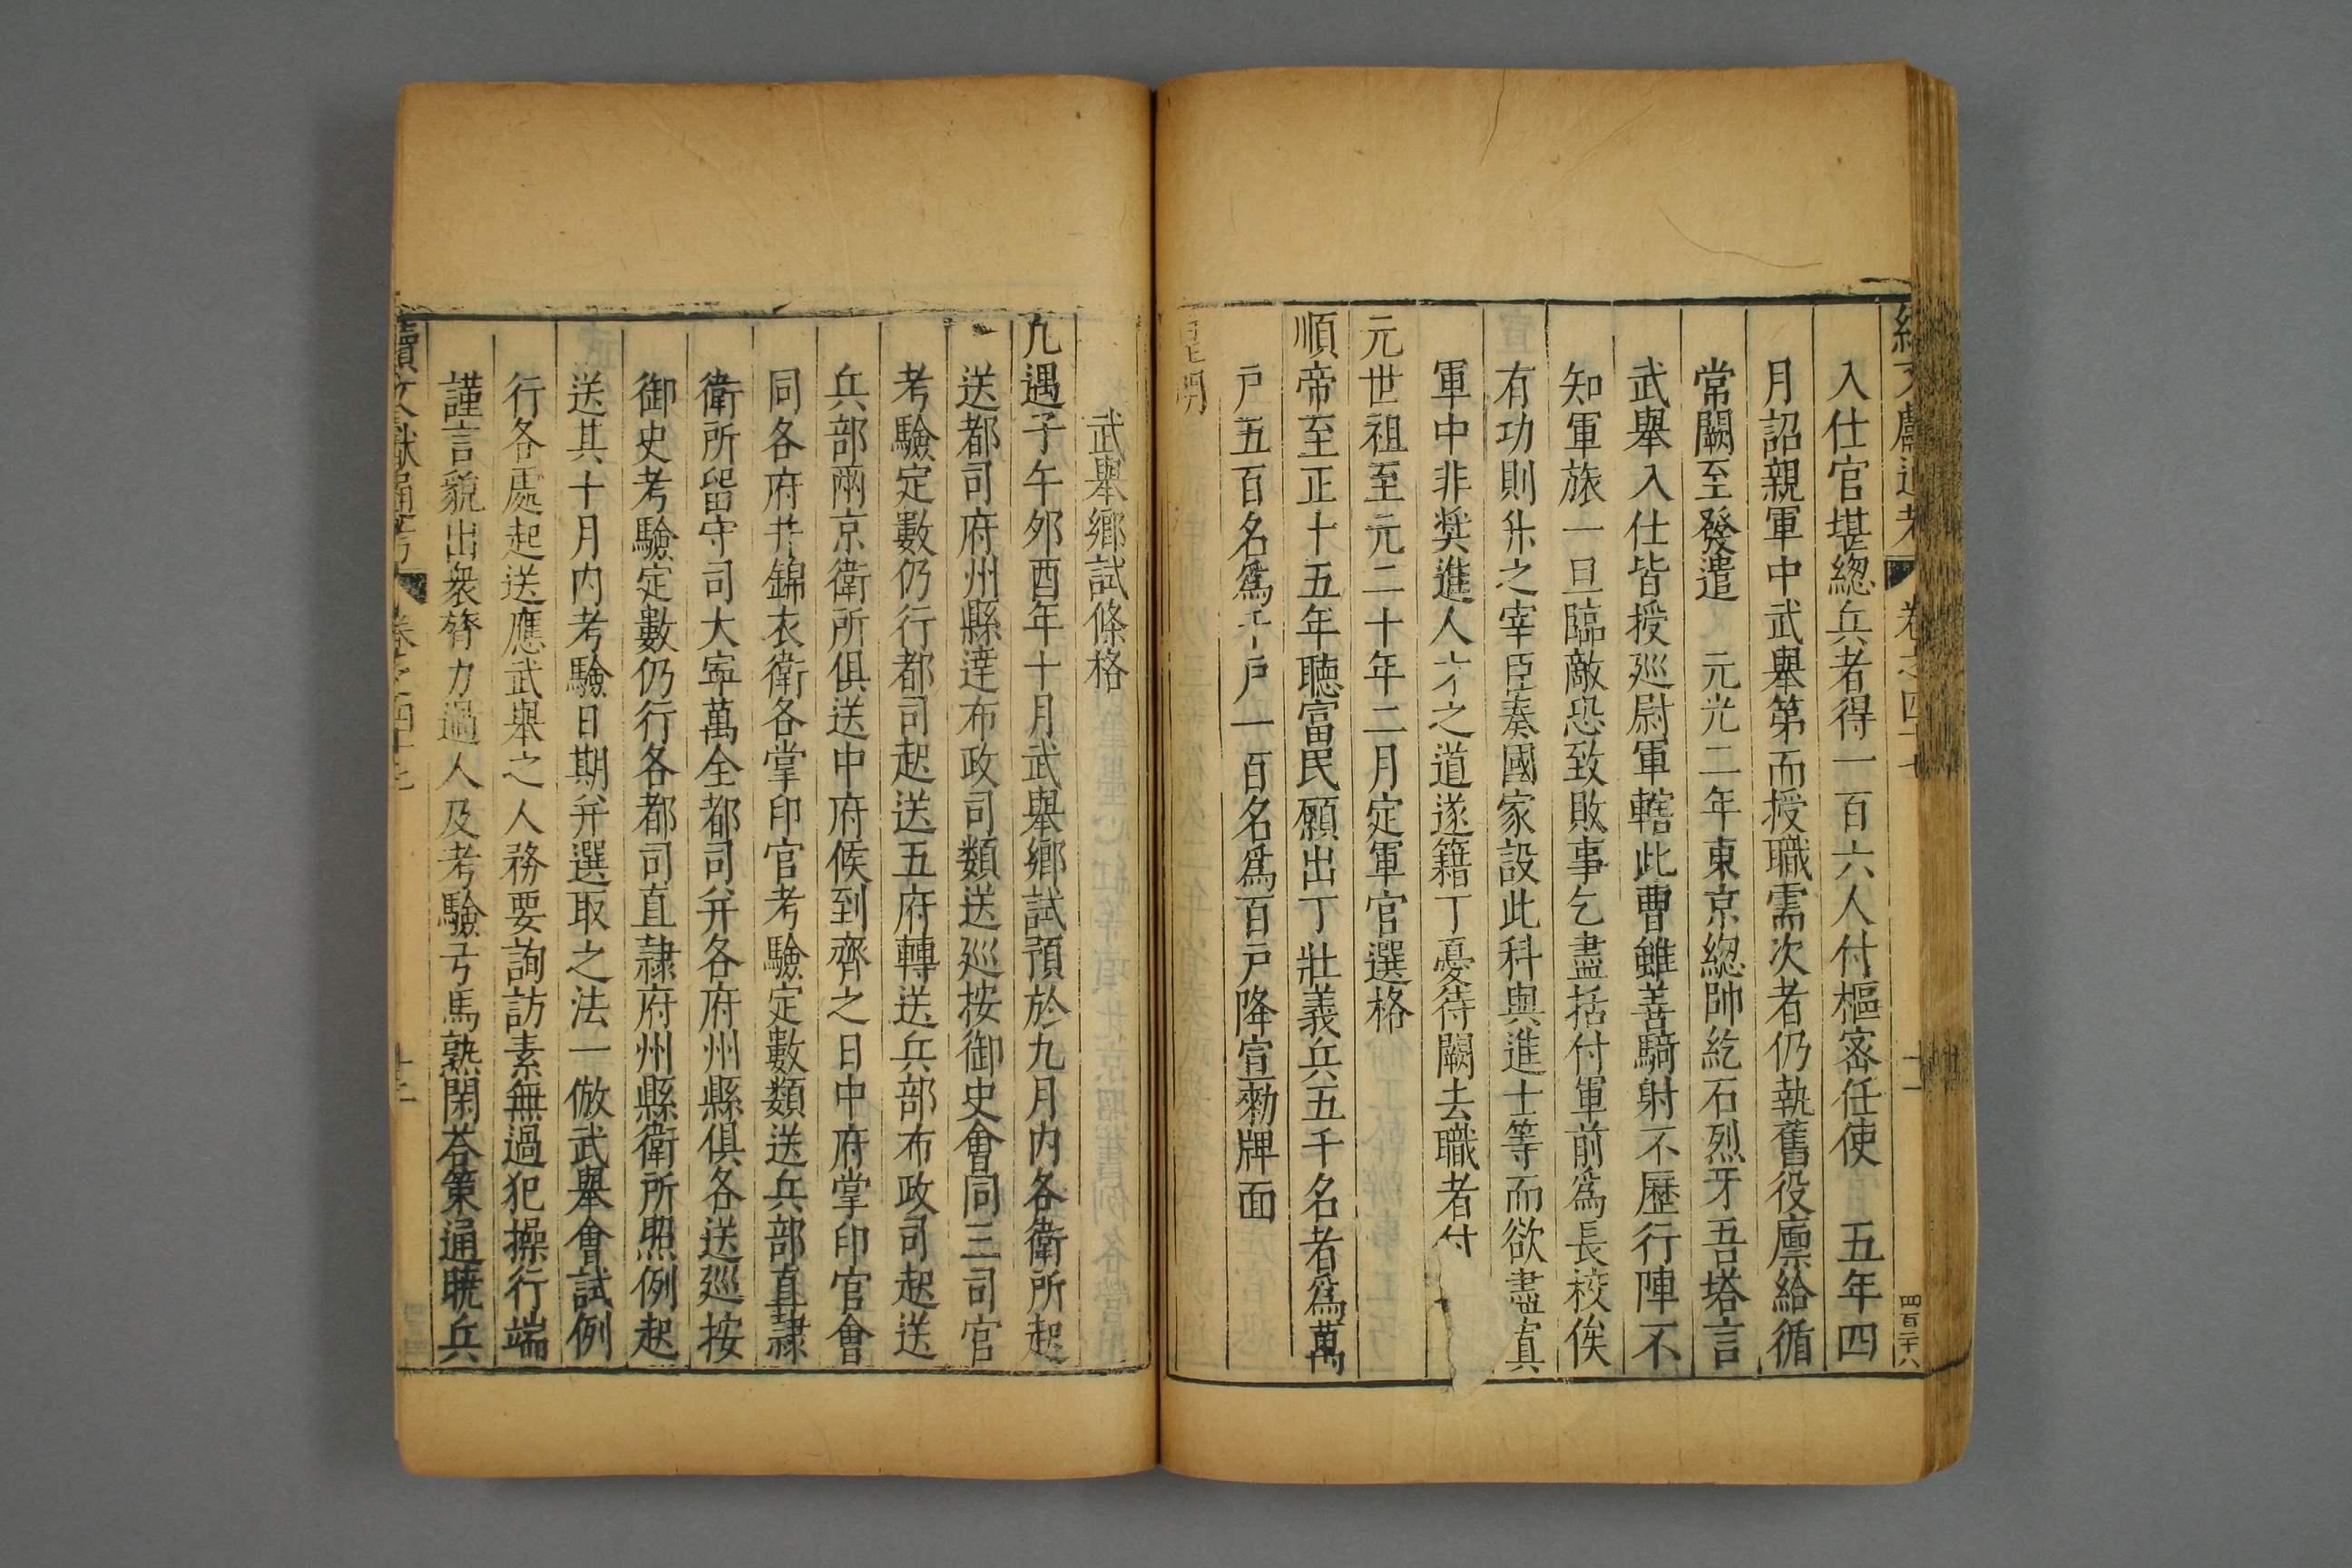 入仕官堪緫兵者得一百六人付樞宻任使　五年四
月詔親軍中武舉第而授職需次者仍執舊役廪給循
常闕至發遣　元光二年東京緫帥紇石烈牙吾塔言
武舉入仕皆授廵尉軍轄此曹雖善騎射不歷行陣不
知軍旅一旦臨敵恐致敗事乞盡括付軍前爲長校俟
有功則升之宰臣奏國家設此科與進士等而欲盡寘
軍中非奨進人才之道遂籍丁憂待闕去職者付
元世祖至元二十年二月定軍官選格
順帝至正十五年聽富民願出丁壯義兵五千名者爲萬
户五百名爲千户一百名爲百户降宣勑牌面
皇明
武舉鄉試條格
凢遇子午夘酉年十月武舉鄉試預於九月内各衛所起
送都司府州縣逹布政司類送廵按御史會同三司官
考驗定數仍行都司起送五府轉送兵部布政司起送
兵部兩京衛所俱送中府候到齊之日中府掌印官會
同各府并錦衣衛各掌印官考驗定數類送兵部直隷
衛所留守司大寧萬全都司并各府州縣俱各送廵按
御史考驗定數仍行各都司直隷府州縣衛所照例起
送其十月内考驗日期并選取之法一倣武舉會試例
行各處起送應武舉之人務要詢訪素無過犯操行端
謹言貌出衆膂力過人及考驗弓馬熟閑荅策通曉兵
續文獻通考　卷之四十七